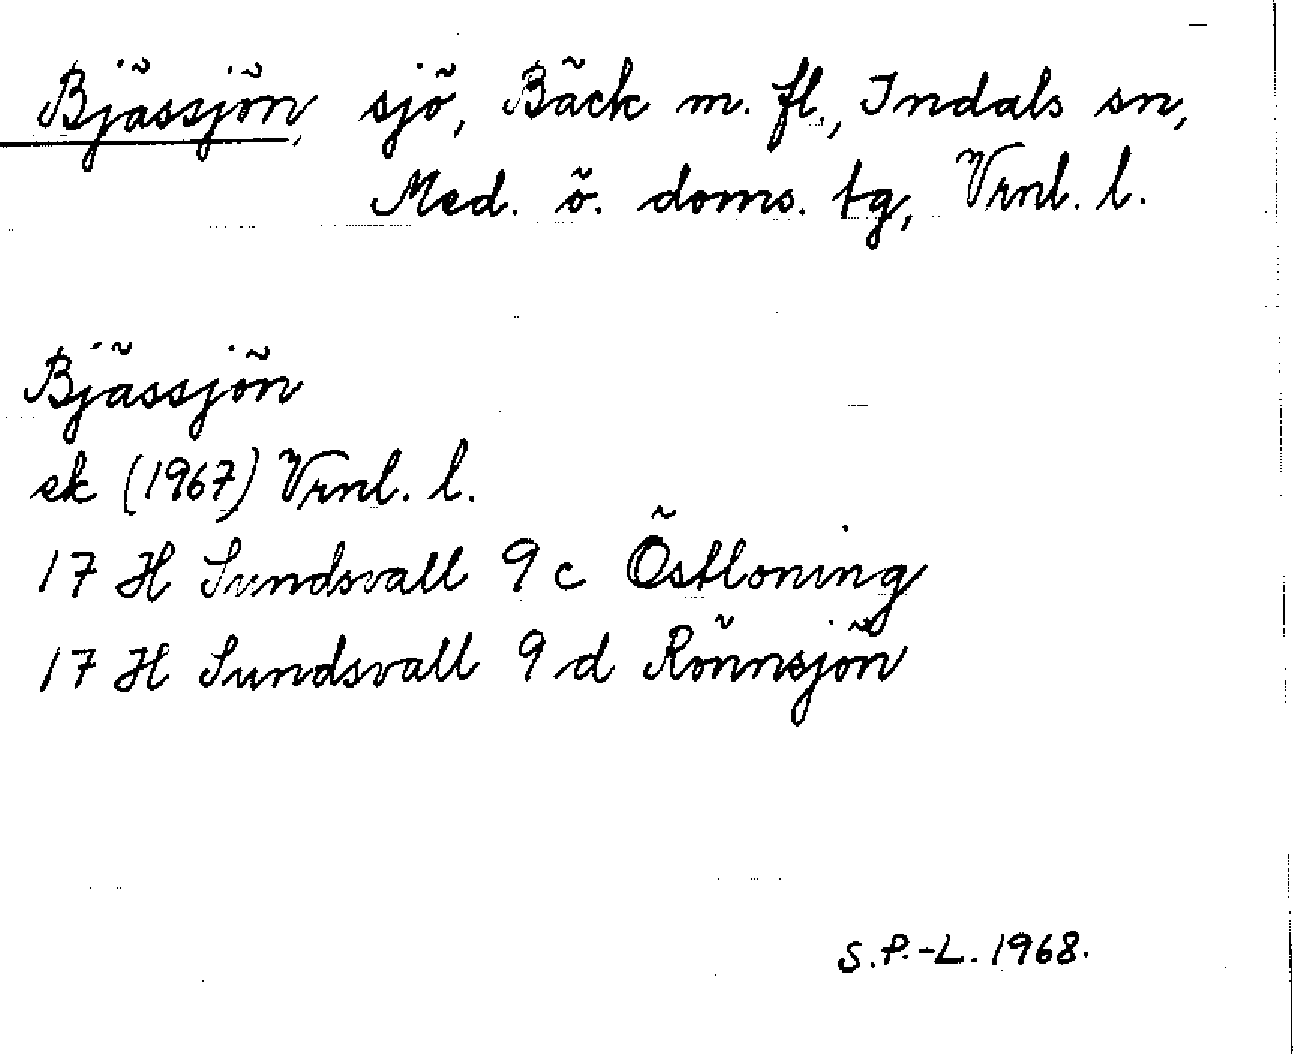 Bjässjön, sjö, Bäck m. fl., Indals sn,
Med. ö. doms. tg, Vrnl. l.
Bjässjön
ek (1967) Vrnl. l.
17 H Sundsvall 9 c Östloning
17 H Sundsvall 9 d Rönnsjön
S.P.-L. 1968.